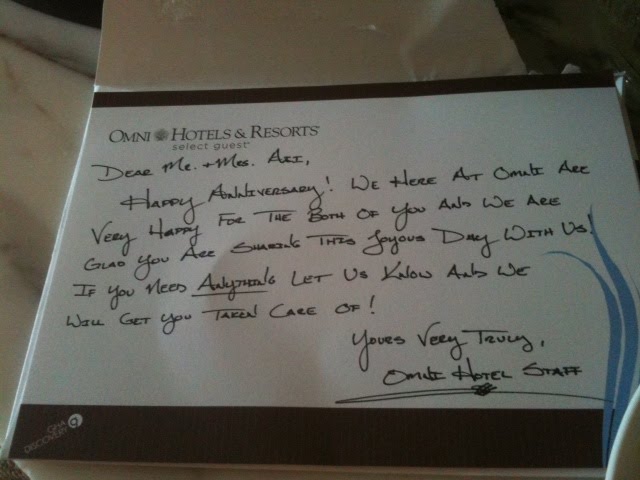 OMNI HOTELS & RESORTS
select guest
DEAR MR. + MRS. AXI,
HAPPY ANNIVERSARY! WE HERE AT OMNI ARE
VERY HAPPY FOR THE BOTH OF YOU AND WE ARE
GLAD YOU ARE SHARING THIS JOYOUS DAY WITH US!
IF YOU NEED ANYTHING LET US KNOW AND WE
WILL GET YOU TAKEN CARE OF!
YOURS VERY TRULY,
OMNI HOTEL STAFF
GHA
DISCOVERY